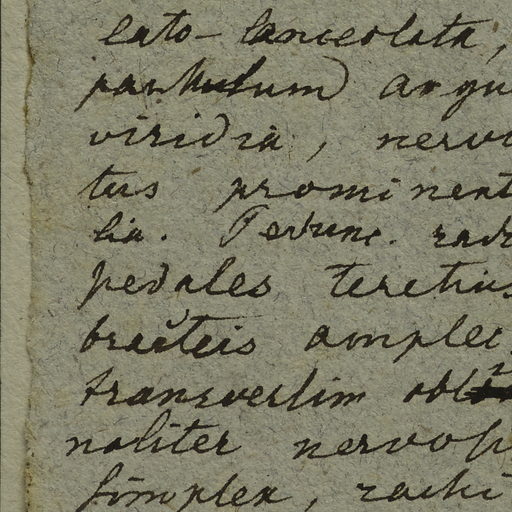 cato-lanceolata,
paululum argu
viridia, nervo
tus prominent
lia. Pedunc. radi
pedales teretius
bracteis amplec
transversim obl
naliter nervos
simplex, rachi